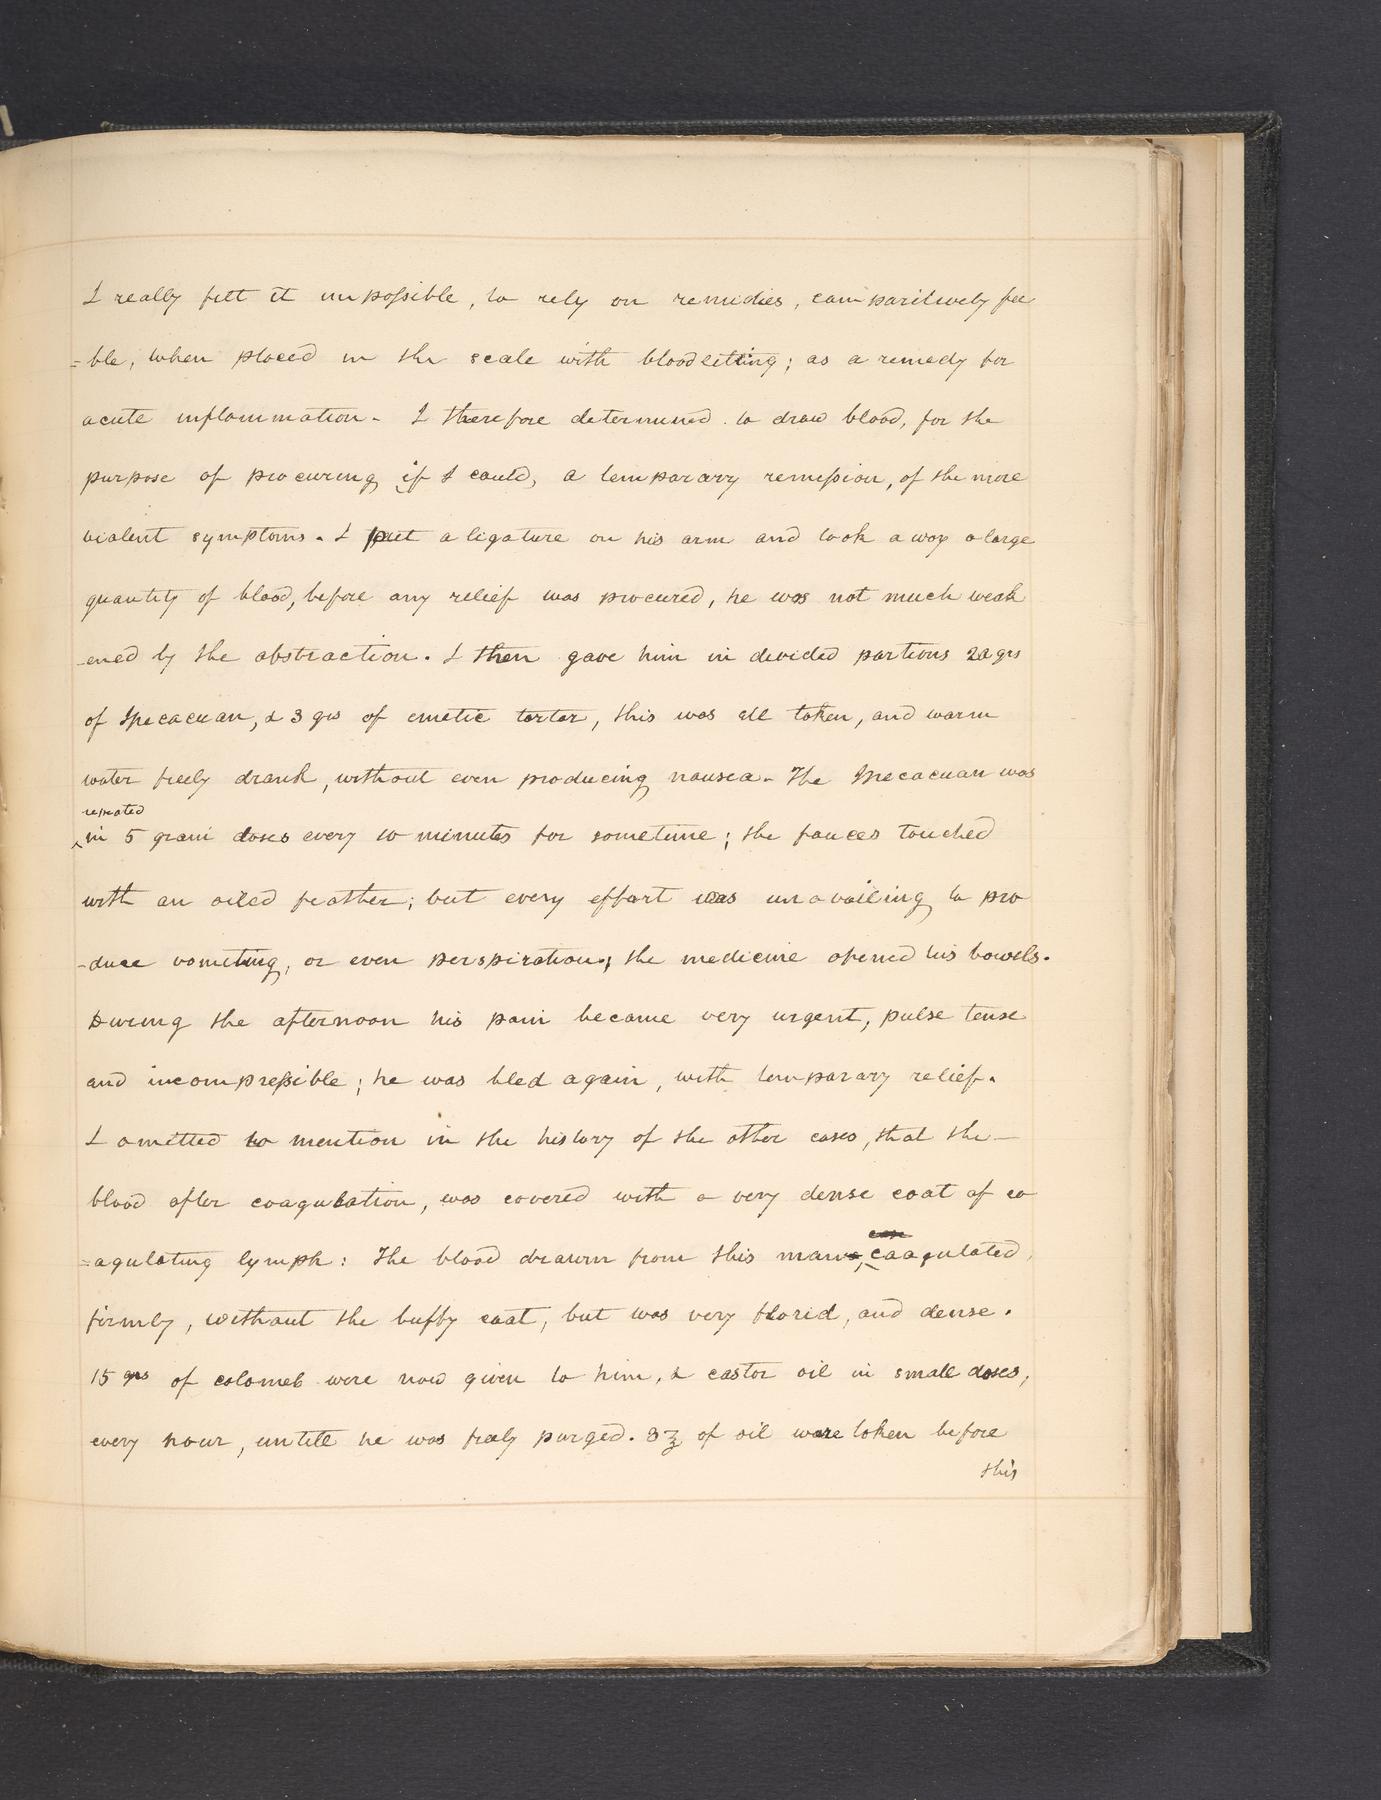 I really felt it impossible, to rely on remidies, comparitively fee
=ble, when placed in the scale with bloodletting; as a remedy for
acute inflammation - I therefore determined to draw blood, for the
purpose of procuring if I could, a temporary remission, of the more
violent symptoms. I put a ligature on his arm and took away a large
quantity of blood, before any relief was procured, he was not much weak
-ened by the abstraction. I then gave him in devided portions 20 grs
of Ipecacuan, & 3 grs of emetic tartar, this was all taken, and warm
water freely drank, without even producing nausea - The Ipecacuan was
repeated
^in 5 grain doses every 10 minutes for sometime; the fauces touched
with an oiled feather; but every effort was unavailing to pro
-duce vomiting, or even perspiration; the medicine opened his bowels.
During the afternoon his pain became very urgent, pulse tense
and incompressible; he was bled again, with temporary relief.
I omitted to mention in the history of the other cases, that the -
blood after coagulation, was covered with a very dense coat of co
=agulating lymph: The blood drawn from this man, coagulated,
firmly, without the buffy coat, but was very florid, and dense.
15 grs of calomel were now given to him, & castor oil in small doses,
every hour, untill he was freely purged. 8 ℥ of oil ware taken before
this